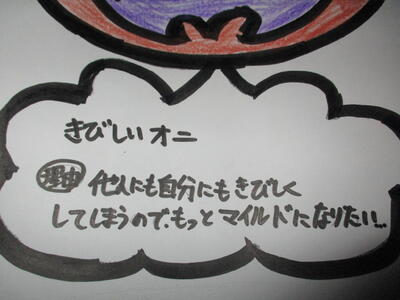 きびしいオニ
理由 他人にも自分にもきびしく
してしまうので、もっとマイルドになりたい…